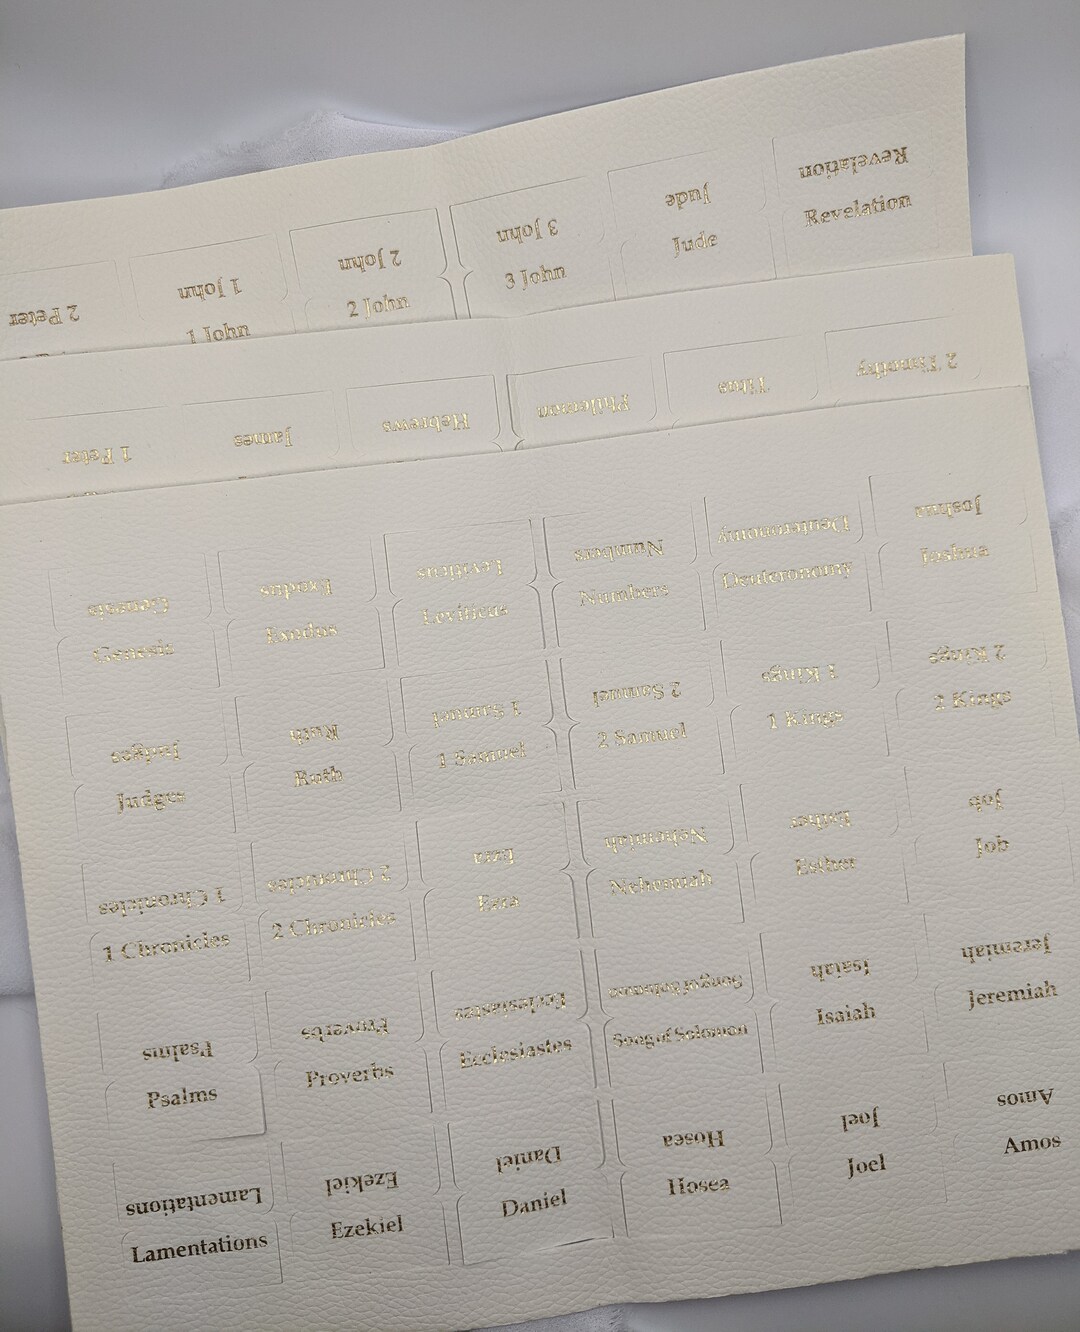 Revelation
Revelation
Jude
Jude
3 John
3 John
2 John
2 John
1 John
1 John
2 Peter
2 Timothy
Titus
Philemon
Hebrews
James
1 Peter
Genesis Exodus Leviticus Numbers Deuteronomy Joshua
Genesis Exodus Leviticus Numbers Deuteronomy Joshua
Judges Ruth 1 Samuel 2 Samuel 1 Kings 2 Kings
Judges Ruth 1 Samuel 2 Samuel 1 Kings 2 Kings
1 Chronicles 2 Chronicles Ezra Nehemiah Esther Job
1 Chronicles 2 Chronicles Ezra Nehemiah Esther Job
Psalms Proverbs Ecclesiastes Song of Solomon Isaiah Jeremiah
Psalms Proverbs Ecclesiastes Song of Solomon Isaiah Jeremiah
Lamentations Ezekiel Daniel Hosea Joel Amos
Lamentations Ezekiel Daniel Hosea Joel Amos